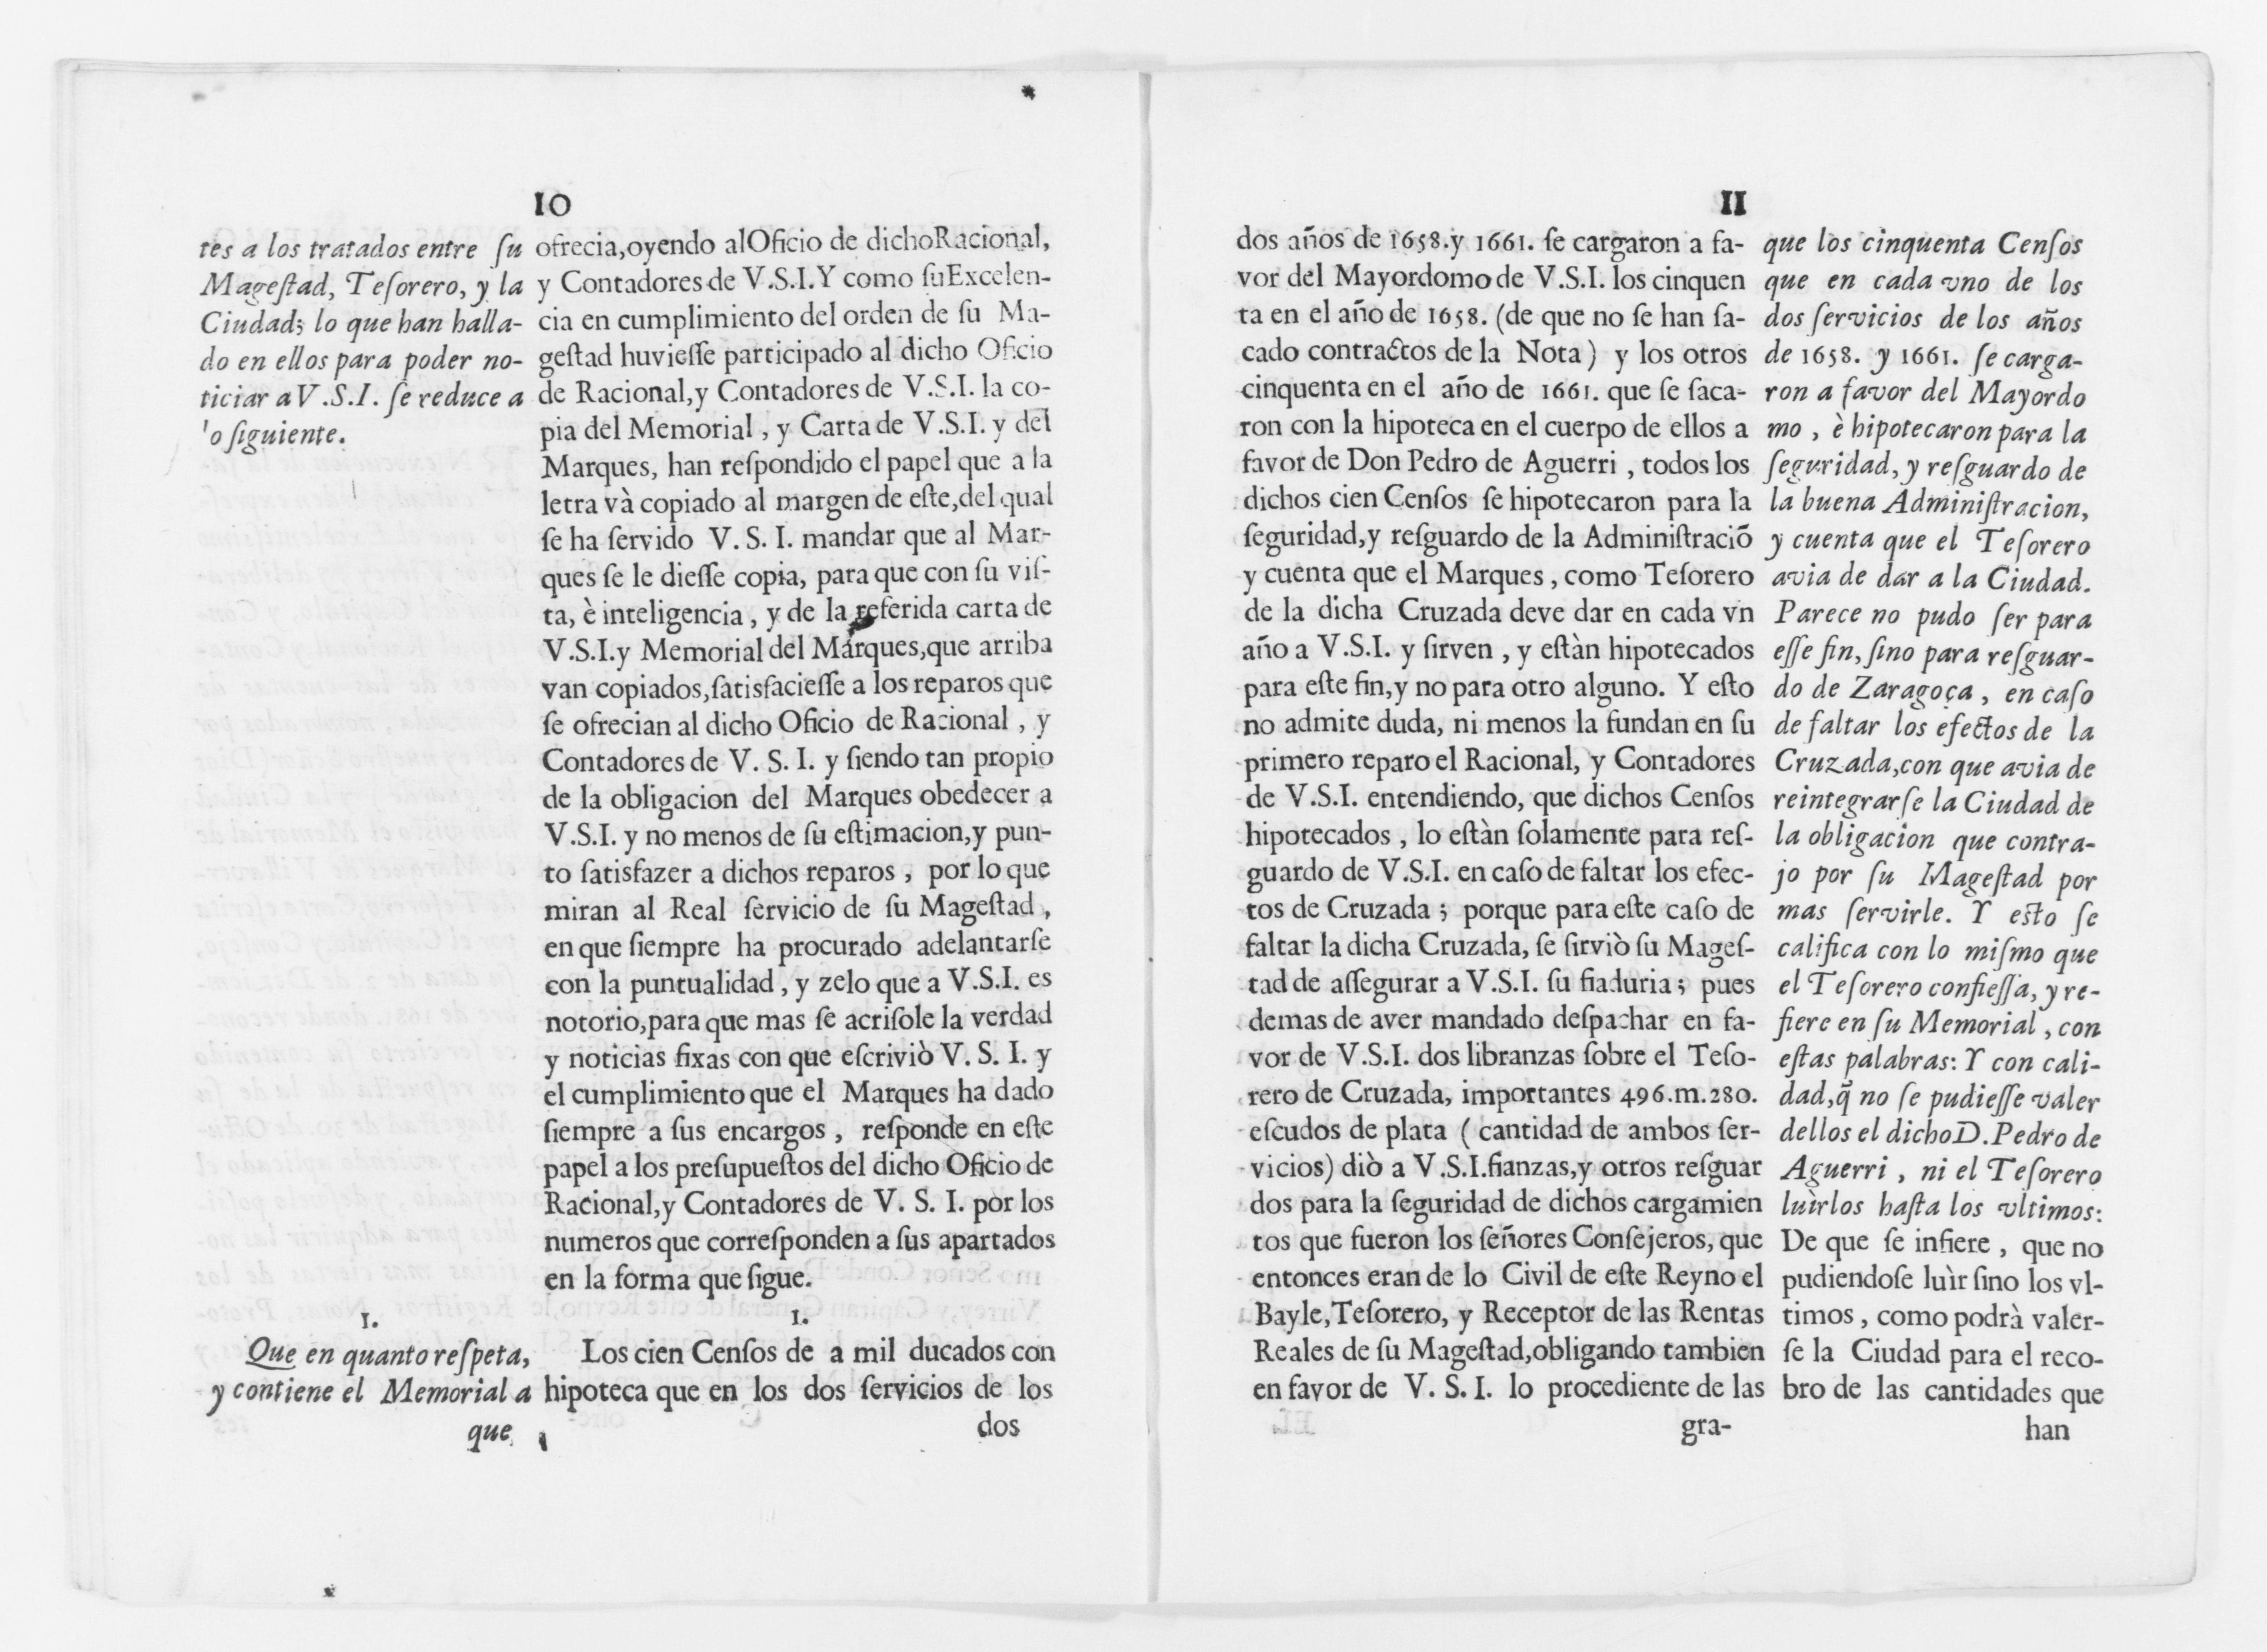 10
tes a los tratados entre ſu
Mageſtad, Teſorero, y la
Ciudad; lo que han halla-
do en ellos para poder no-
ticiar a V.S.I. ſe reduce a
lo ſiguiente.
1.
Que en quanto reſpeta,
y contiene el Memorial a
que
ofrecia,oyendo alOficio de dichoRacional,
y Contadores de V.S.I.Y como ſuExcelen-
cia en cumplimiento del orden de ſu Ma-
geſtad huvieſſe participado al dicho Oficio
de Racional,y Contadores de V.S.I. la co-
pia del Memorial, y Carta de V.S.I. y del
Marques, han reſpondido el papel que a la
letra và copiado al margen de eſte,del qual
ſe ha ſervido V. S. I. mandar que al Mar-
ques ſe le dieſſe copia, para que con ſu viſ-
ta, è inteligencia, y de la referida carta de
V.S.I.y Memorial del Marques,que arriba
van copiados,ſatisfacieſſe a los reparos que
ſe ofrecian al dicho Oficio de Racional, y
Contadores de V. S. I. y ſiendo tan propio
de la obligacion del Marques obedecer a
V.S.I. y no menos de ſu eſtimacion,y pun-
to ſatisfazer a dichos reparos, por lo que
miran al Real ſervicio de ſu Mageſtad,
en que ſiempre ha procurado adelantarſe
con la puntualidad, y zelo que a V.S.I. es
notorio,para que mas ſe acriſole la verdad
y noticias fixas con que eſcriviò V. S. I. y
el cumplimiento que el Marques ha dado
ſiempre a ſus encargos, reſponde en eſte
papel a los preſupueſtos del dicho Oficio de
Racional,y Contadores de V. S. I. por los
numeros que correſponden a ſus apartados
en la forma que ſigue.
1.
Los cien Cenſos de a mil ducados con
hipoteca que en los dos ſervicios de los
dos
11
dos años de 1658.y 1661. ſe cargaron a fa-
vor del Mayordomo de V.S.I. los cinquen
ta en el año de 1658. (de que no ſe han ſa-
cado contractos de la Nota) y los otros
cinquenta en el año de 1661. que ſe ſaca-
ron con la hipoteca en el cuerpo de ellos a
favor de Don Pedro de Aguerri, todos los
dichos cien Cenſos ſe hipotecaron para la
ſeguridad,y reſguardo de la Adminiſtraciõ
y cuenta que el Marques, como Teſorero
de la dicha Cruzada deve dar en cada vn
año a V.S.I. y ſirven, y eſtàn hipotecados
para eſte fin,y no para otro alguno. Y eſto
no admite duda, ni menos la fundan en ſu
primero reparo el Racional, y Contadores
de V.S.I. entendiendo, que dichos Cenſos
hipotecados, lo eſtàn ſolamente para reſ-
guardo de V.S.I. en caſo de faltar los efec-
tos de Cruzada; porque para eſte caſo de
faltar la dicha Cruzada, ſe ſirviò ſu Mageſ-
tad de aſſegurar a V.S.I. ſu fiaduria; pues
demas de aver mandado deſpachar en fa-
vor de V.S.I. dos libranzas ſobre el Teſo-
rero de Cruzada, importantes 496.m.280.
eſcudos de plata (cantidad de ambos ſer-
vicios) diò a V.S.I.fianzas,y otros reſguar
dos para la ſeguridad de dichos cargamien
tos que fueron los ſeñores Conſejeros, que
entonces eran de lo Civil de eſte Reyno el
Bayle,Teſorero, y Receptor de las Rentas
Reales de ſu Mageſtad,obligando tambien
en favor de V. S. I. lo procediente de las
gra-
que los cinquenta Cenſos
que en cada vno de los
dos ſervicios de los años
de 1658. y 1661. ſe carga-
ron a favor del Mayordo
mo, è hipotecaron para la
ſeguridad, y reſguardo de
la buena Adminiſtracion,
y cuenta que el Teſorero
avia de dar a la Ciudad.
Parece no pudo ſer para
eſſe fin, ſino para reſguar-
do de Zaragoça, en caſo
de faltar los efectos de la
Cruzada,con que avia de
reintegrarſe la Ciudad de
la obligacion que contra-
jo por ſu Mageſtad por
mas ſervirle. Y eſto ſe
califica con lo miſmo que
el Teſorero confieſſa, y re-
fiere en ſu Memorial, con
eſtas palabras: Y con cali-
dad,q̃ no ſe pudieſſe valer
dellos el dichoD.Pedro de
Aguerri, ni el Teſorero
luìrlos haſta los vltimos:
De que ſe infiere, que no
pudiendoſe luìr ſino los vl-
timos, como podrà valer-
ſe la Ciudad para el reco-
bro de las cantidades que
han